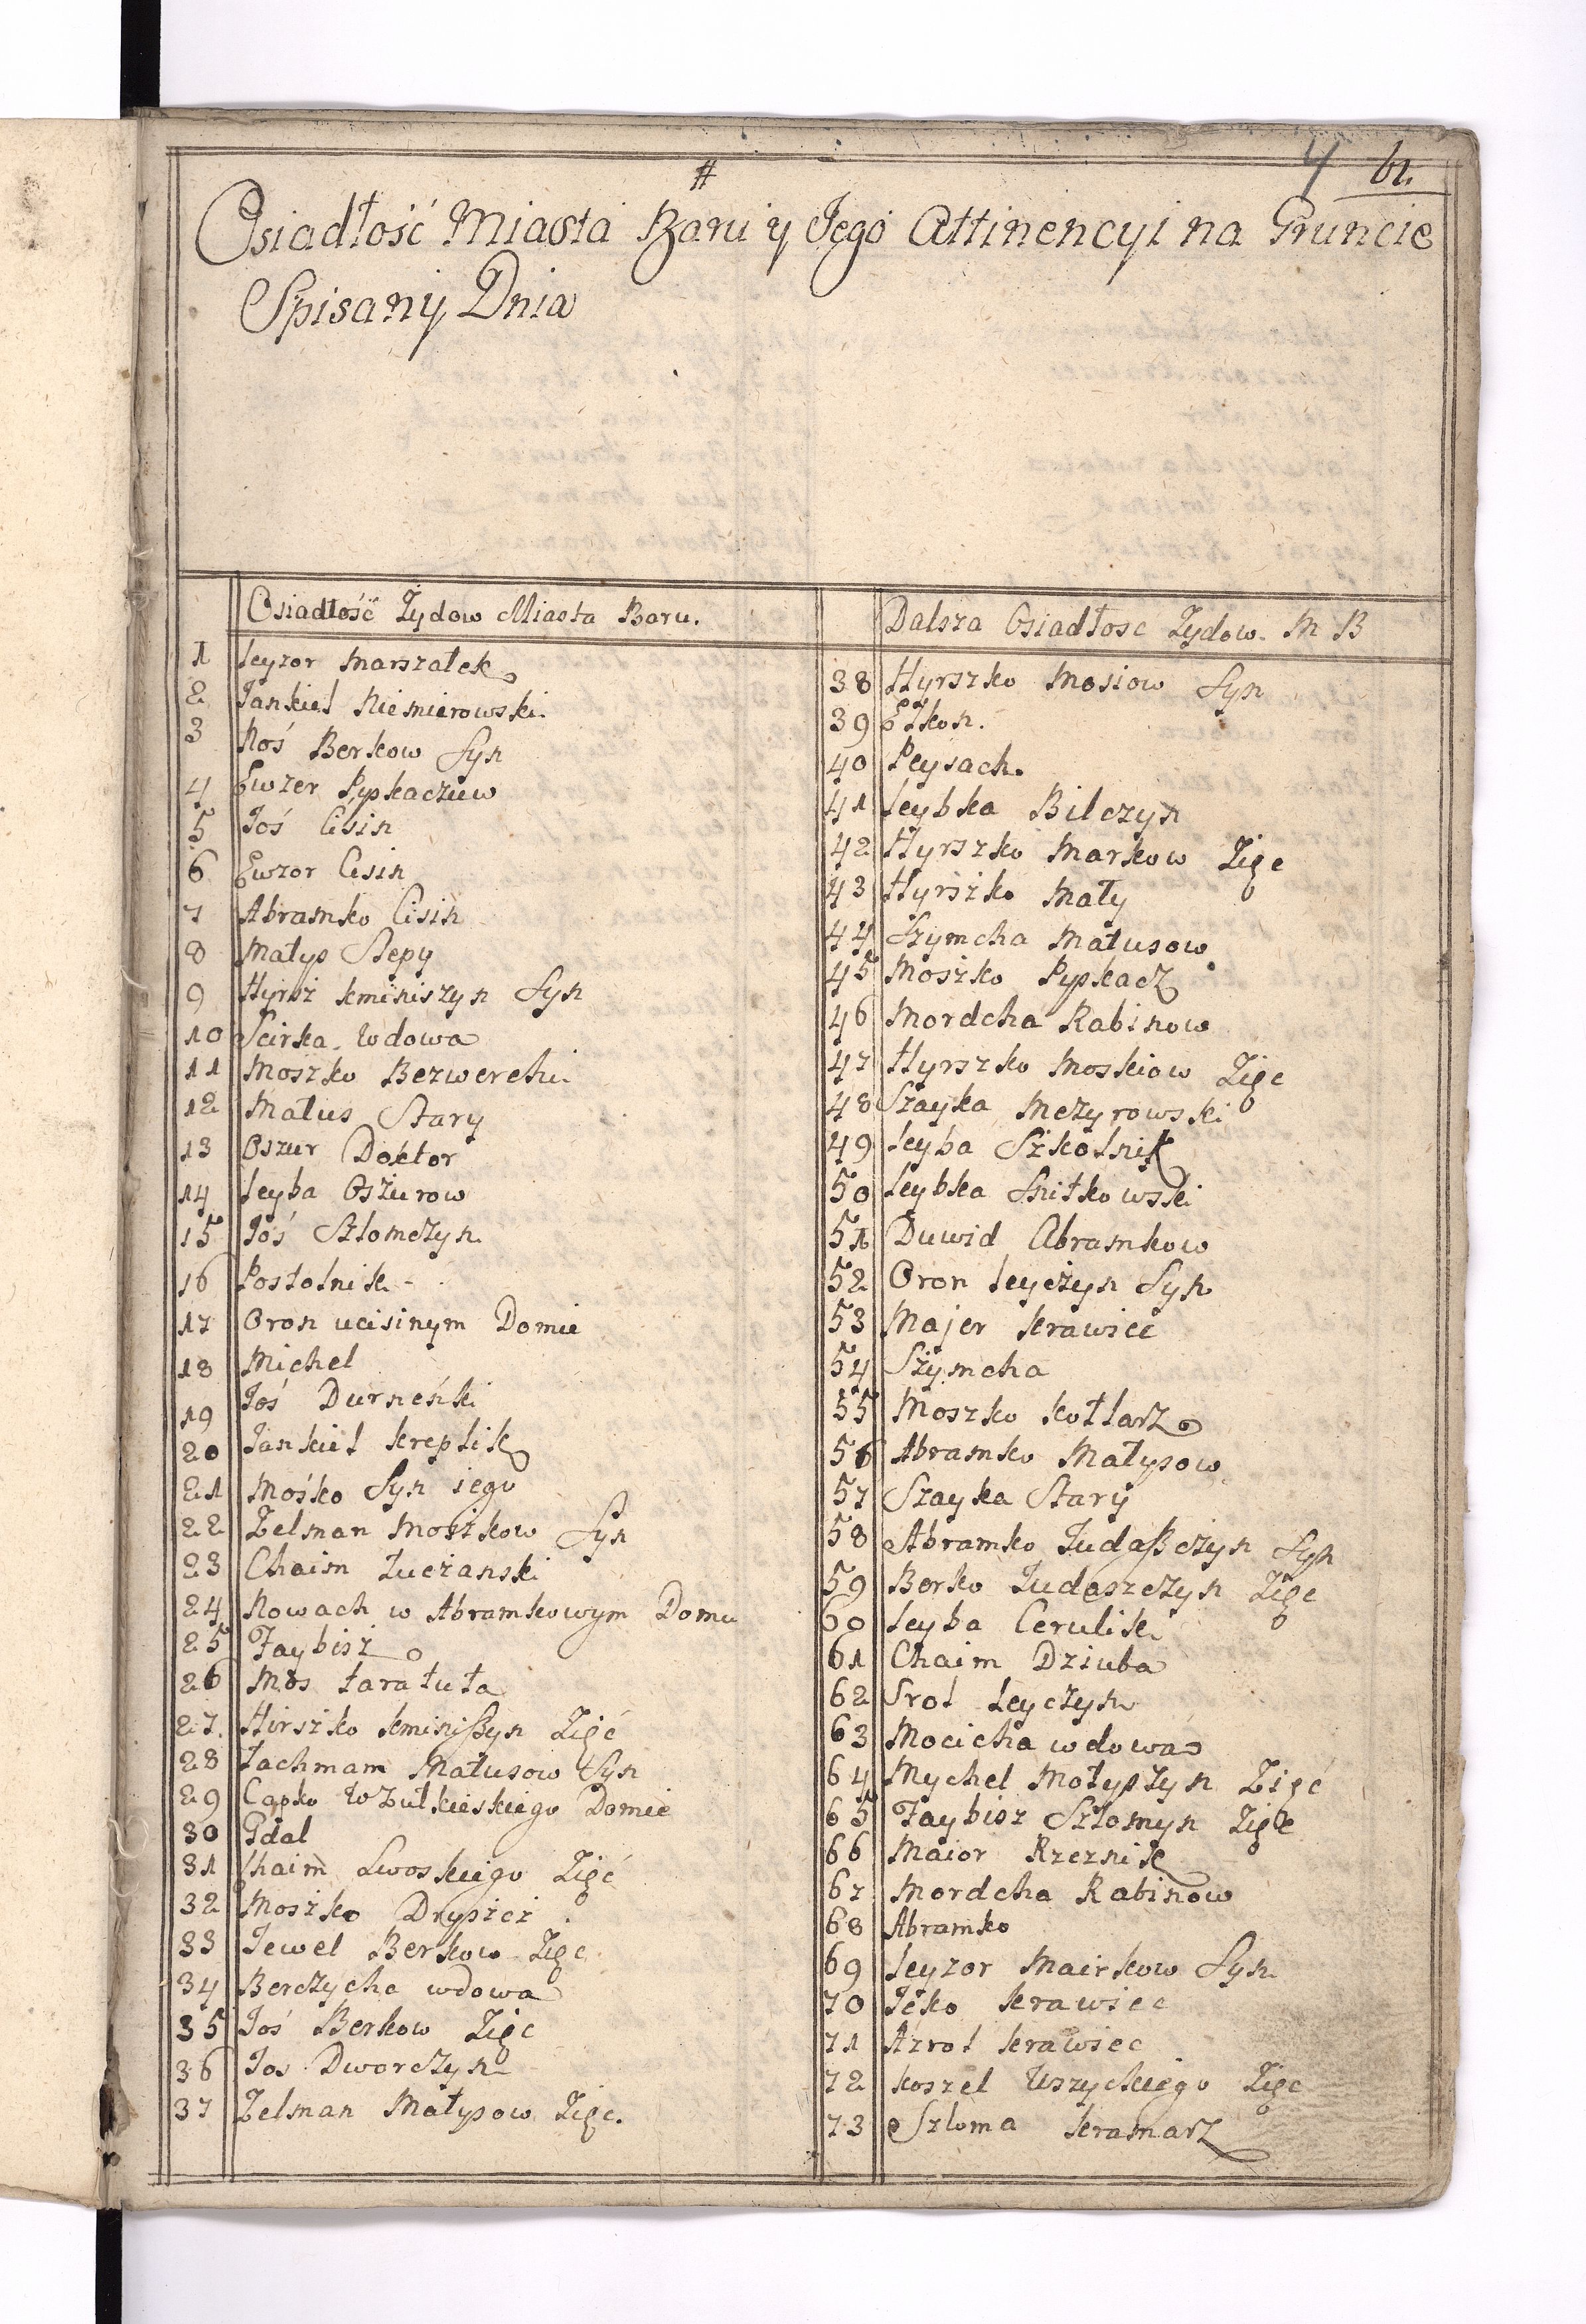 #
4 61.
Osiadłość Miasta Baru y Jego Attinencyi na Gruncie
Spisany Dnia
Osiadłość Żydow Miasta Baru.
1 Leyzor Marszałek
2 Jankiel Niemierowski
3 Noś Berkow Syn
4 Ewzer Pyskaczuw
5 Joś Cisin
6 Ewzor Cisin
7 Abramko Cisin
8 Matys Slepy
9 Hyrsz Kminiszyn Syn
10 Scirka Wdowa
11 Moszko Bezwerchi
12 Matus Stary
13 Oszur Doktor
14 Leyba Oszurow
15 Joś Szlomczyn
16 Postolnik
17 Oron ucisinym Domie
18 Michel
19 Joś Durneńki
20 Jankiel Kreplik
21 Mośko Syn iego
22 Zelman Moszkow Syn
23 Chaim Łuczanski
24 Nowach w Abramkowym Domu
25 Faybisz
26 Mos Taratuta
27 Hirszko Kminißyn Zięć
28 Lachmam Matusow Syn
29 Capko W Żułkieiskiego Domie
30 Gdal
31 Chaim Lwoskiego Zięć
32 Moszko Drypżei
33 Jewel Berkow Zięc
34 Berczycha wdowa
35 Joś Berkow Zięc
36 Jos Dworczyn
37 Zelman Matysow Zięc.
Dalsza Osiadłosc Żydow. M B
38 Hyrszko Mosiow Syn
39 Etkon.
40 Peysach.
41 Leybka Bilczyn
42 Hyrszko Markow Zięc
43 Hyrszko Mały
44 Szymcha Matusow
45 Moszko Pyskacz
46 Mordcha Rabinow
47 Hyrszko Moskiow Zięc
48 Szayka Mezyrowski
49 Leyba Szkolnik
50 Leybka Snitkowski
51 Duwid Abramkow
52 Oron Leyczyn Syn
53 Majer Krawiec
54 Szymcha
55 Moszko Kotlarz
56 Abramko Matysow
57 Szayka Stary
58 Abramko Judaßczyn Syn
59 Berko Judaszczyn Zięc
60 Leyba Cerulik
61 Chaim Dziuba
62 Srol Leyczyn
63 Mocicha wdowa
64 Mychel Motypżyn Zięć
65 Faybisz Szlomyn Zięc
66 Maior Rzeznik
67 Mordcha Rabinow
68 Abramko
69 Leyzor Mairkow Syn
70 Jcko Krawiec
71 Azrol Krawiec
72 Koszel Uszyckiego Zięc
73 Szloma Kramarz